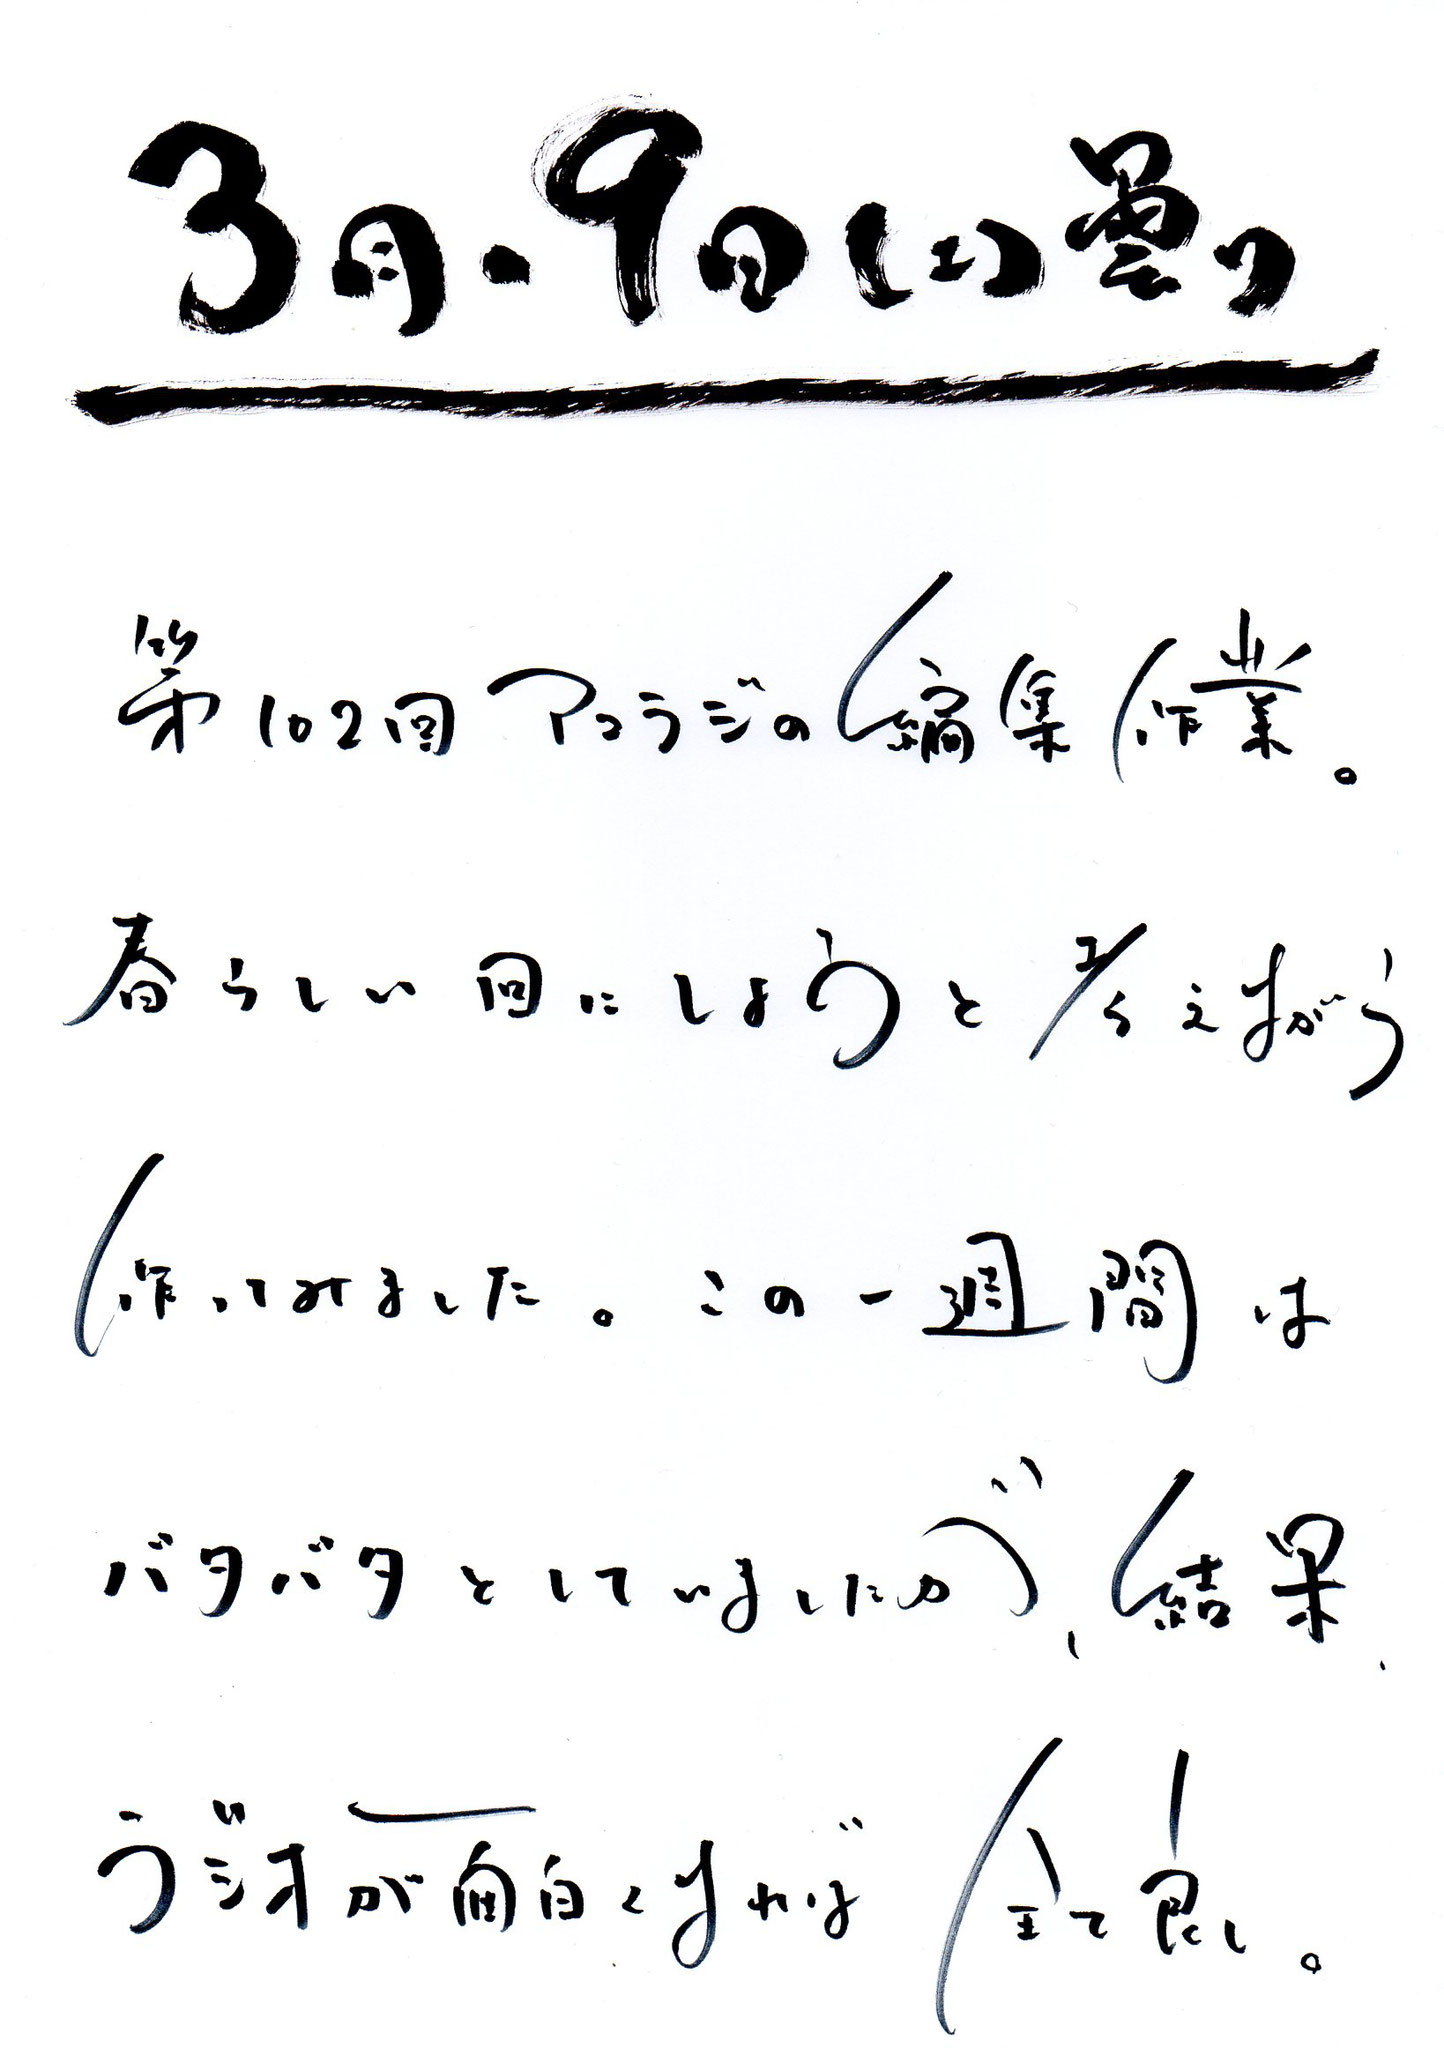 3月・9日(土)曇り
第102回アコラジの編集作業。
春らしい回にしようと考えながら
作ってみました。この一週間は
バタバタとしていましたが、結果、
ラジオが面白くなれば全て良し。